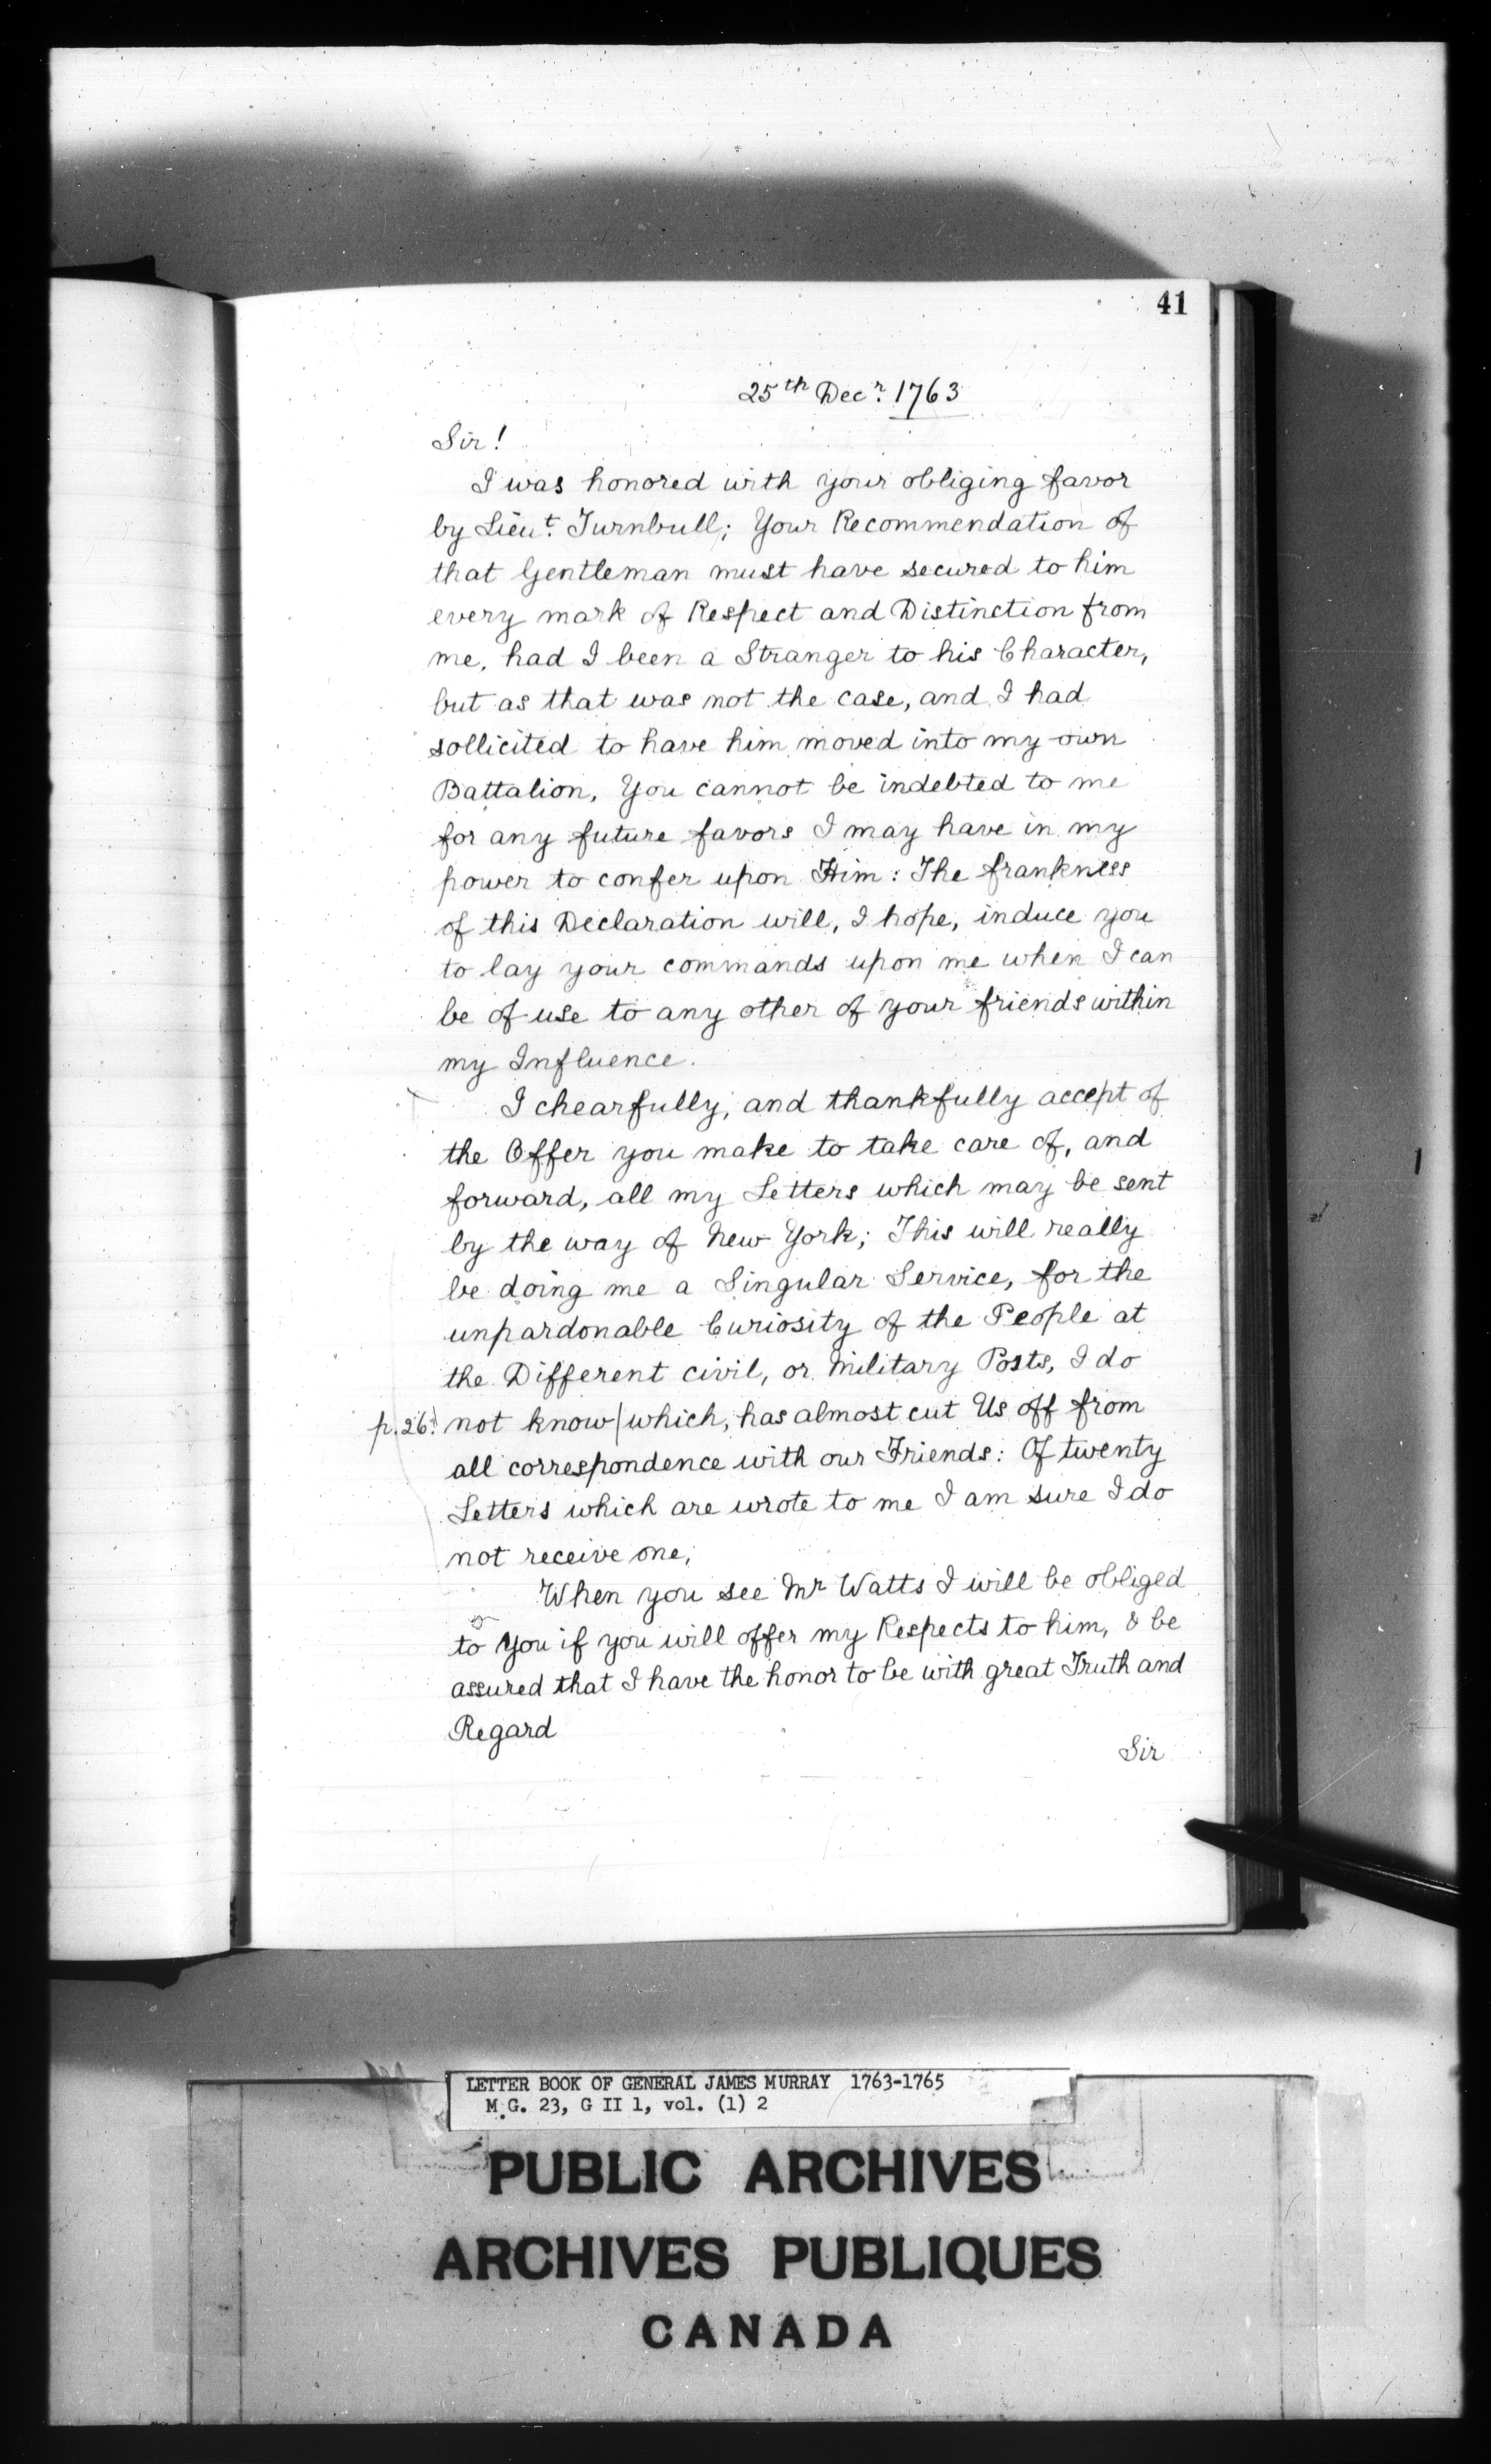 41
25th Decr. 1763
Sir!
I was honored with your obliging favor
by Lieut. Turnbull; Your Recommendation of
that Gentleman must have secured to him
every mark of Respect and Distinction from
me, had I been a Stranger to his Character,
but as that was not the case, and I had
sollicited to have him moved into my own
Battalion, You cannot be indebted to me
for any future favors I may have in my
power to confer upon Him: The frankness
of this Declaration will, I hope, induce you
to lay your commands upon me when I can
be of use to any other of your friends within
my Influence.
I chearfully, and thankfully accept of
the Offer you make to take care of, and
forward, all my Letters which may be sent
by the way of New York; This will really
be doing me a Singular Service, for the
unpardonable Curiosity of the People at
the Different civil, or Military Posts, I do
p.26. not know/which, has almost cut Us off from
all correspondence with our Friends: Of twenty
Letters which are wrote to me I am sure I do
not receive one,
When you see Mr Watts I will be obliged
to You if you will offer my Respects to him, & be
assured that I have the honor to be with great Truth and
Regard
Sir
LETTER BOOK OF GENERAL JAMES MURRAY 1763-1765
M.G. 23, G II 1, vol. (1) 2
PUBLIC ARCHIVES
ARCHIVES PUBLIQUES
CANADA